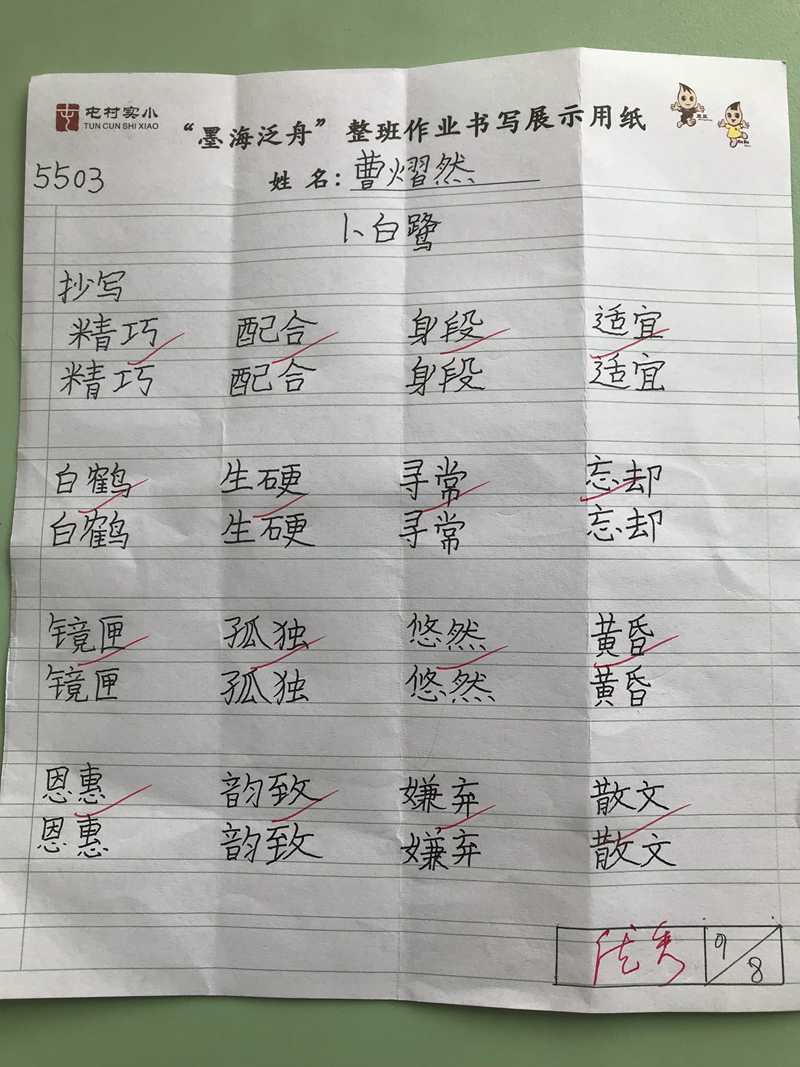 屯村实小
TUN CUN SHI XIAO
“墨海泛舟”整班作业书写展示用纸
5503
姓名：曹熠然
1、白鹭
抄写
精巧 配合 身段 适宜
精巧 配合 身段 适宜
白鹤 生硬 寻常 忘却
白鹤 生硬 寻常 忘却
镜匣 孤独 悠然 黄昏
镜匣 孤独 悠然 黄昏
恩惠 韵致 嫌弃 散文
恩惠 韵致 嫌弃 散文
优秀 9/8